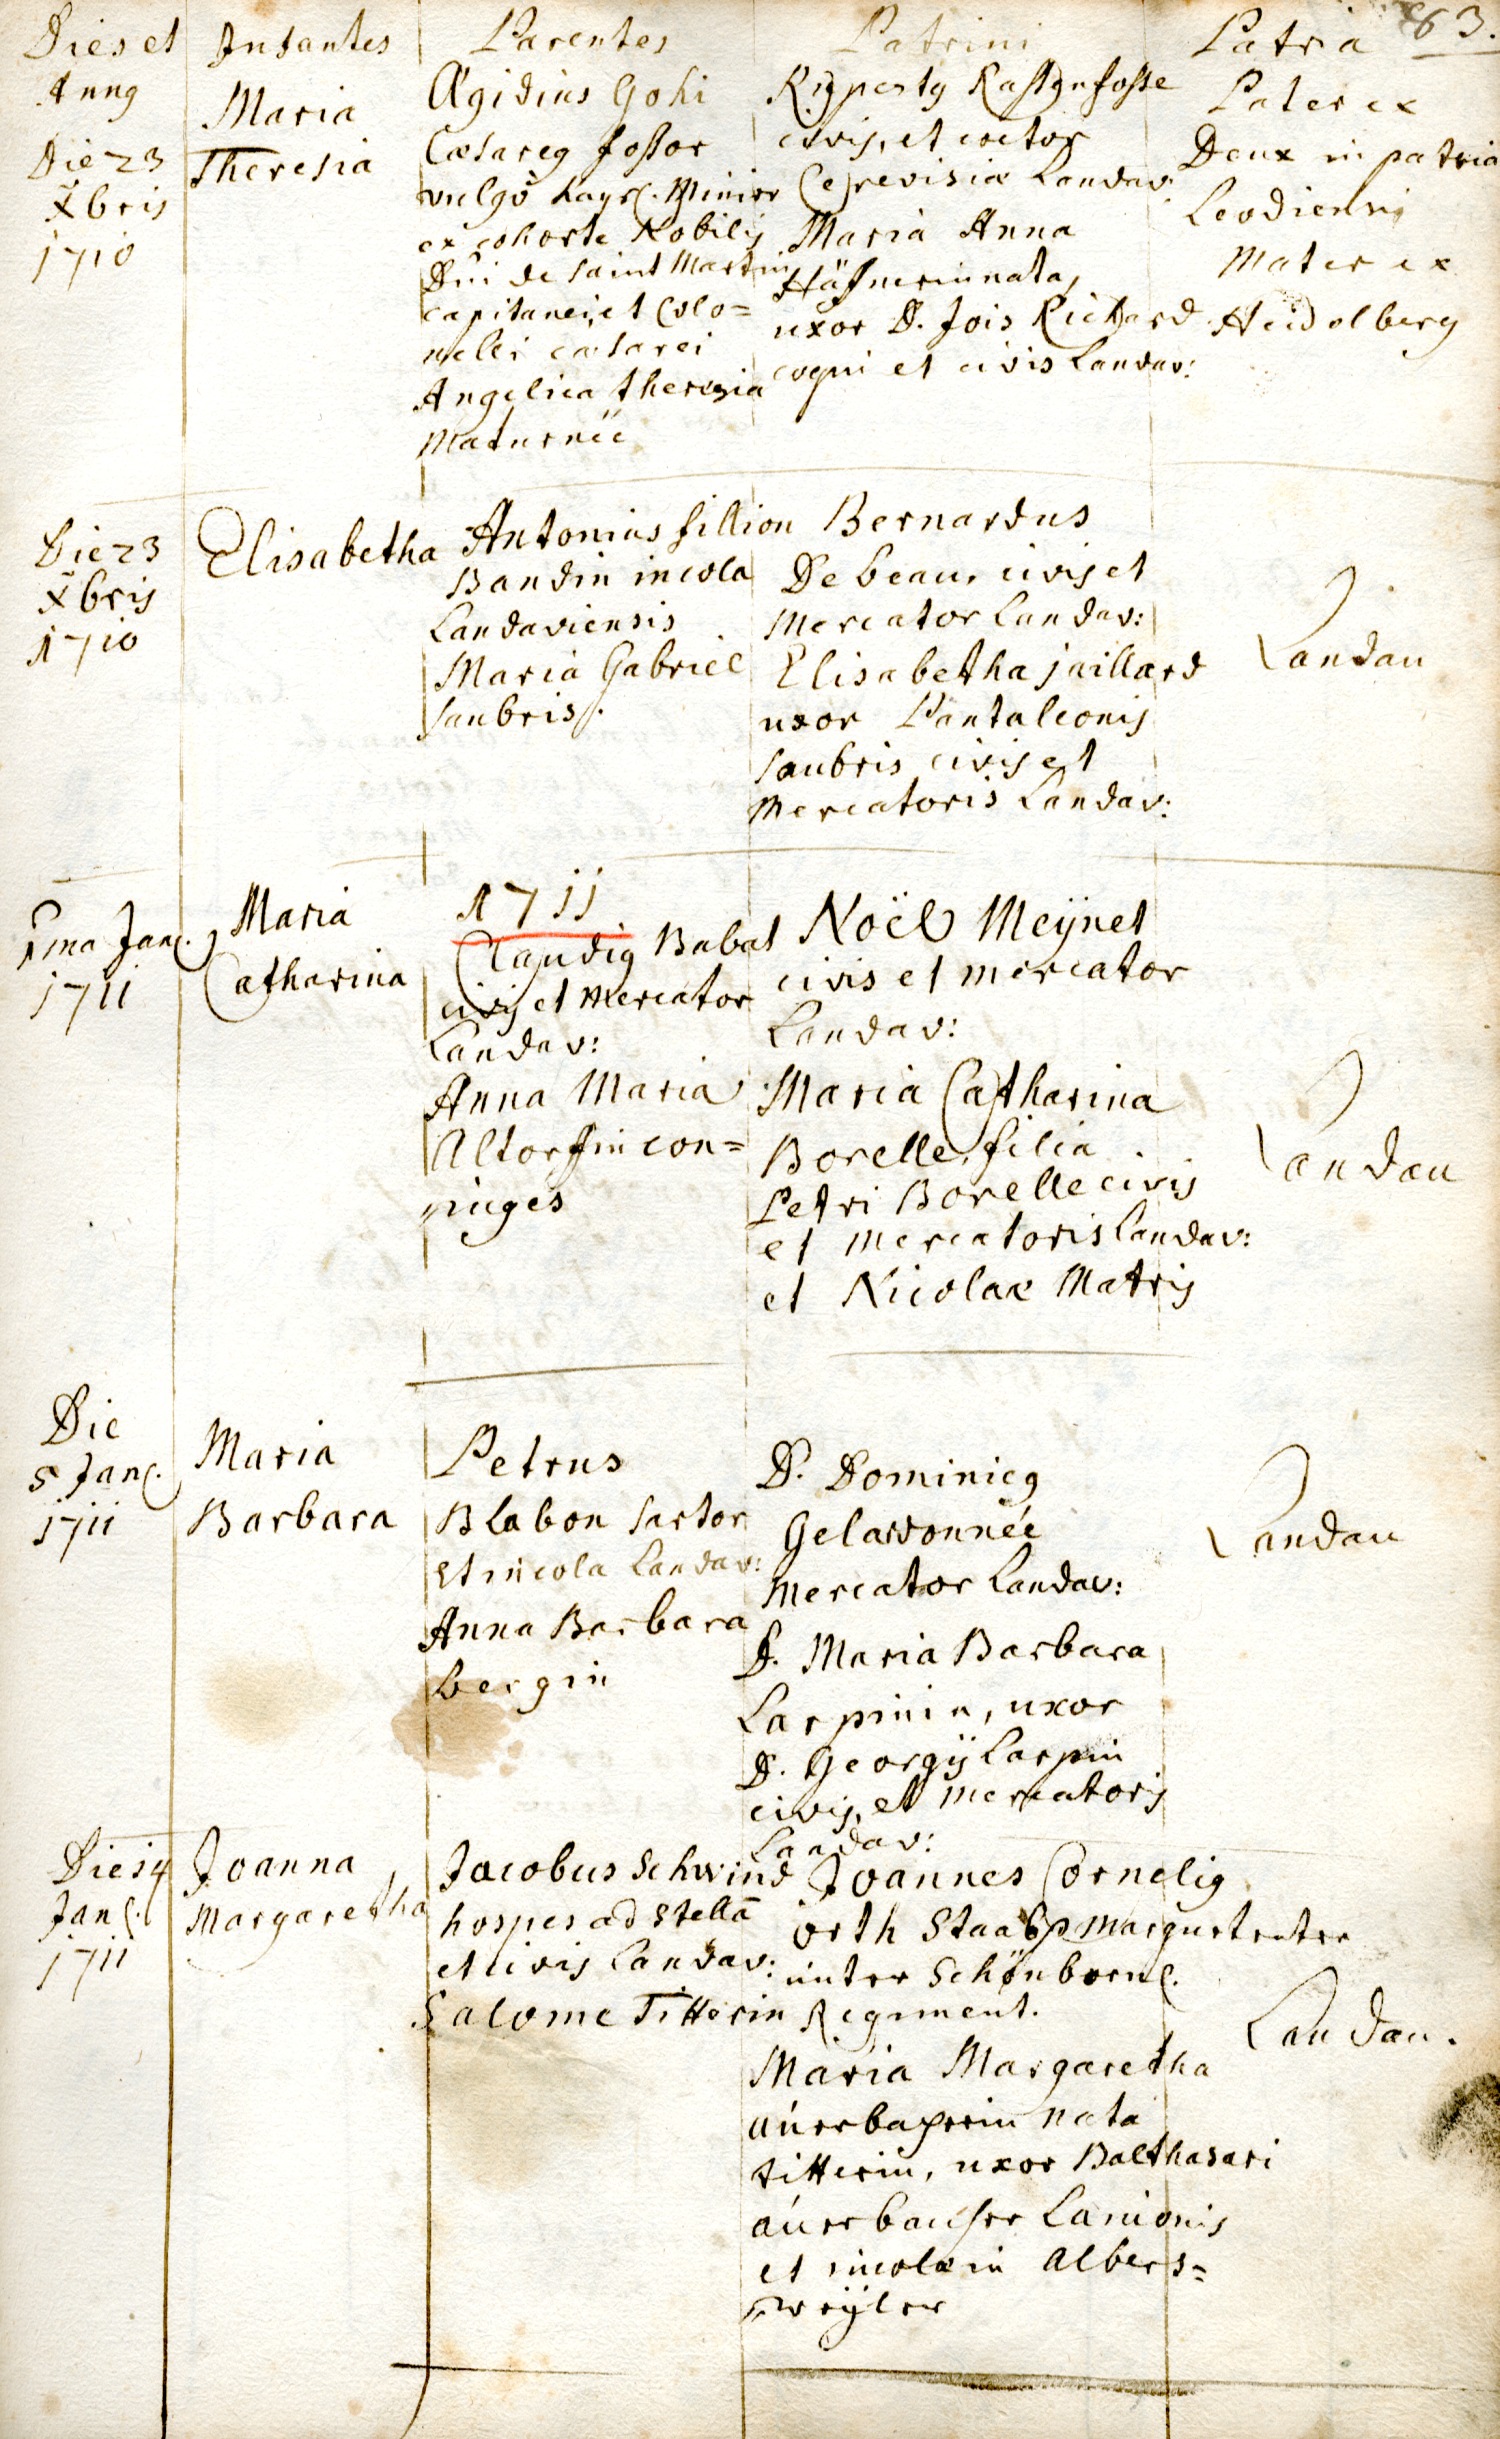 63.
Dies et Annus
Infantes
Parentes
Patrini
Patria
Die 23
Xbris
1710
Maria
Theresia
Ægidius Gohi
Cæsareus fossor
vulgò kays. Minirer
ex cohorte Nobilis
Dni de Saint Martin
capitanei, et Colo=
nelli cæsarei
Angelica theresia
Maturnée
civis, et coctor
Cerevisiæ Landav:
Maria Anna
Häfnerin nata,
uxor D. Jois Richard
coqui et civis Landav:
Pater ex
Deux in patria
Leodiensi
Mater ex
Heidelberg
Die 23
Xbris
1710
Elisabetha
Antonius fillion
Baudin incola
Landaviensis
Maria Gabriel
Saubris.
Bernardus
De beau, civis et
Mercator Landav:
Elisabetha jaillard
uxor Pantaleonis
Saubris civis et
Mercatoris Landav:
Landau
1711
1ma Jan.
1711
Maria
Catharina
Claudius Babat
civis et Mercator
Landav:
Anna Maria
Altorffin con=
iuges
Noël Meÿnet
civis et mercator
Landav:
Maria Catharina
Borelle, filia
Petri Borelle civis
et Mercatoris Landav:
et Nicolaæ Matris
Landau
Die
5 Jan.
1711
Maria
Barbara
Petrus
Blabon Sartor
et incola Landav:
Anna Barbara
bergin
D. Dominicus
Gelardonnée
Mercator Landav:
D. Maria Barbara
Larpinin, uxor
D. Georgÿ Larpin
civis, et mercatoris
Landav:
Landau
Die 14
Jan.
1711
Joanna
Margaretha
Jacobus Schwind
hospes ad Stellā
et civis Landav:
Salome Titterin
Joannes Cornelius
orth Staabs Marquetenter
unter Schönborn.
Regiment.
Maria Margaretha
nata
titterin, uxor Balthasari
Lanionis
et incolæ in Albers=
weÿler
Landau.